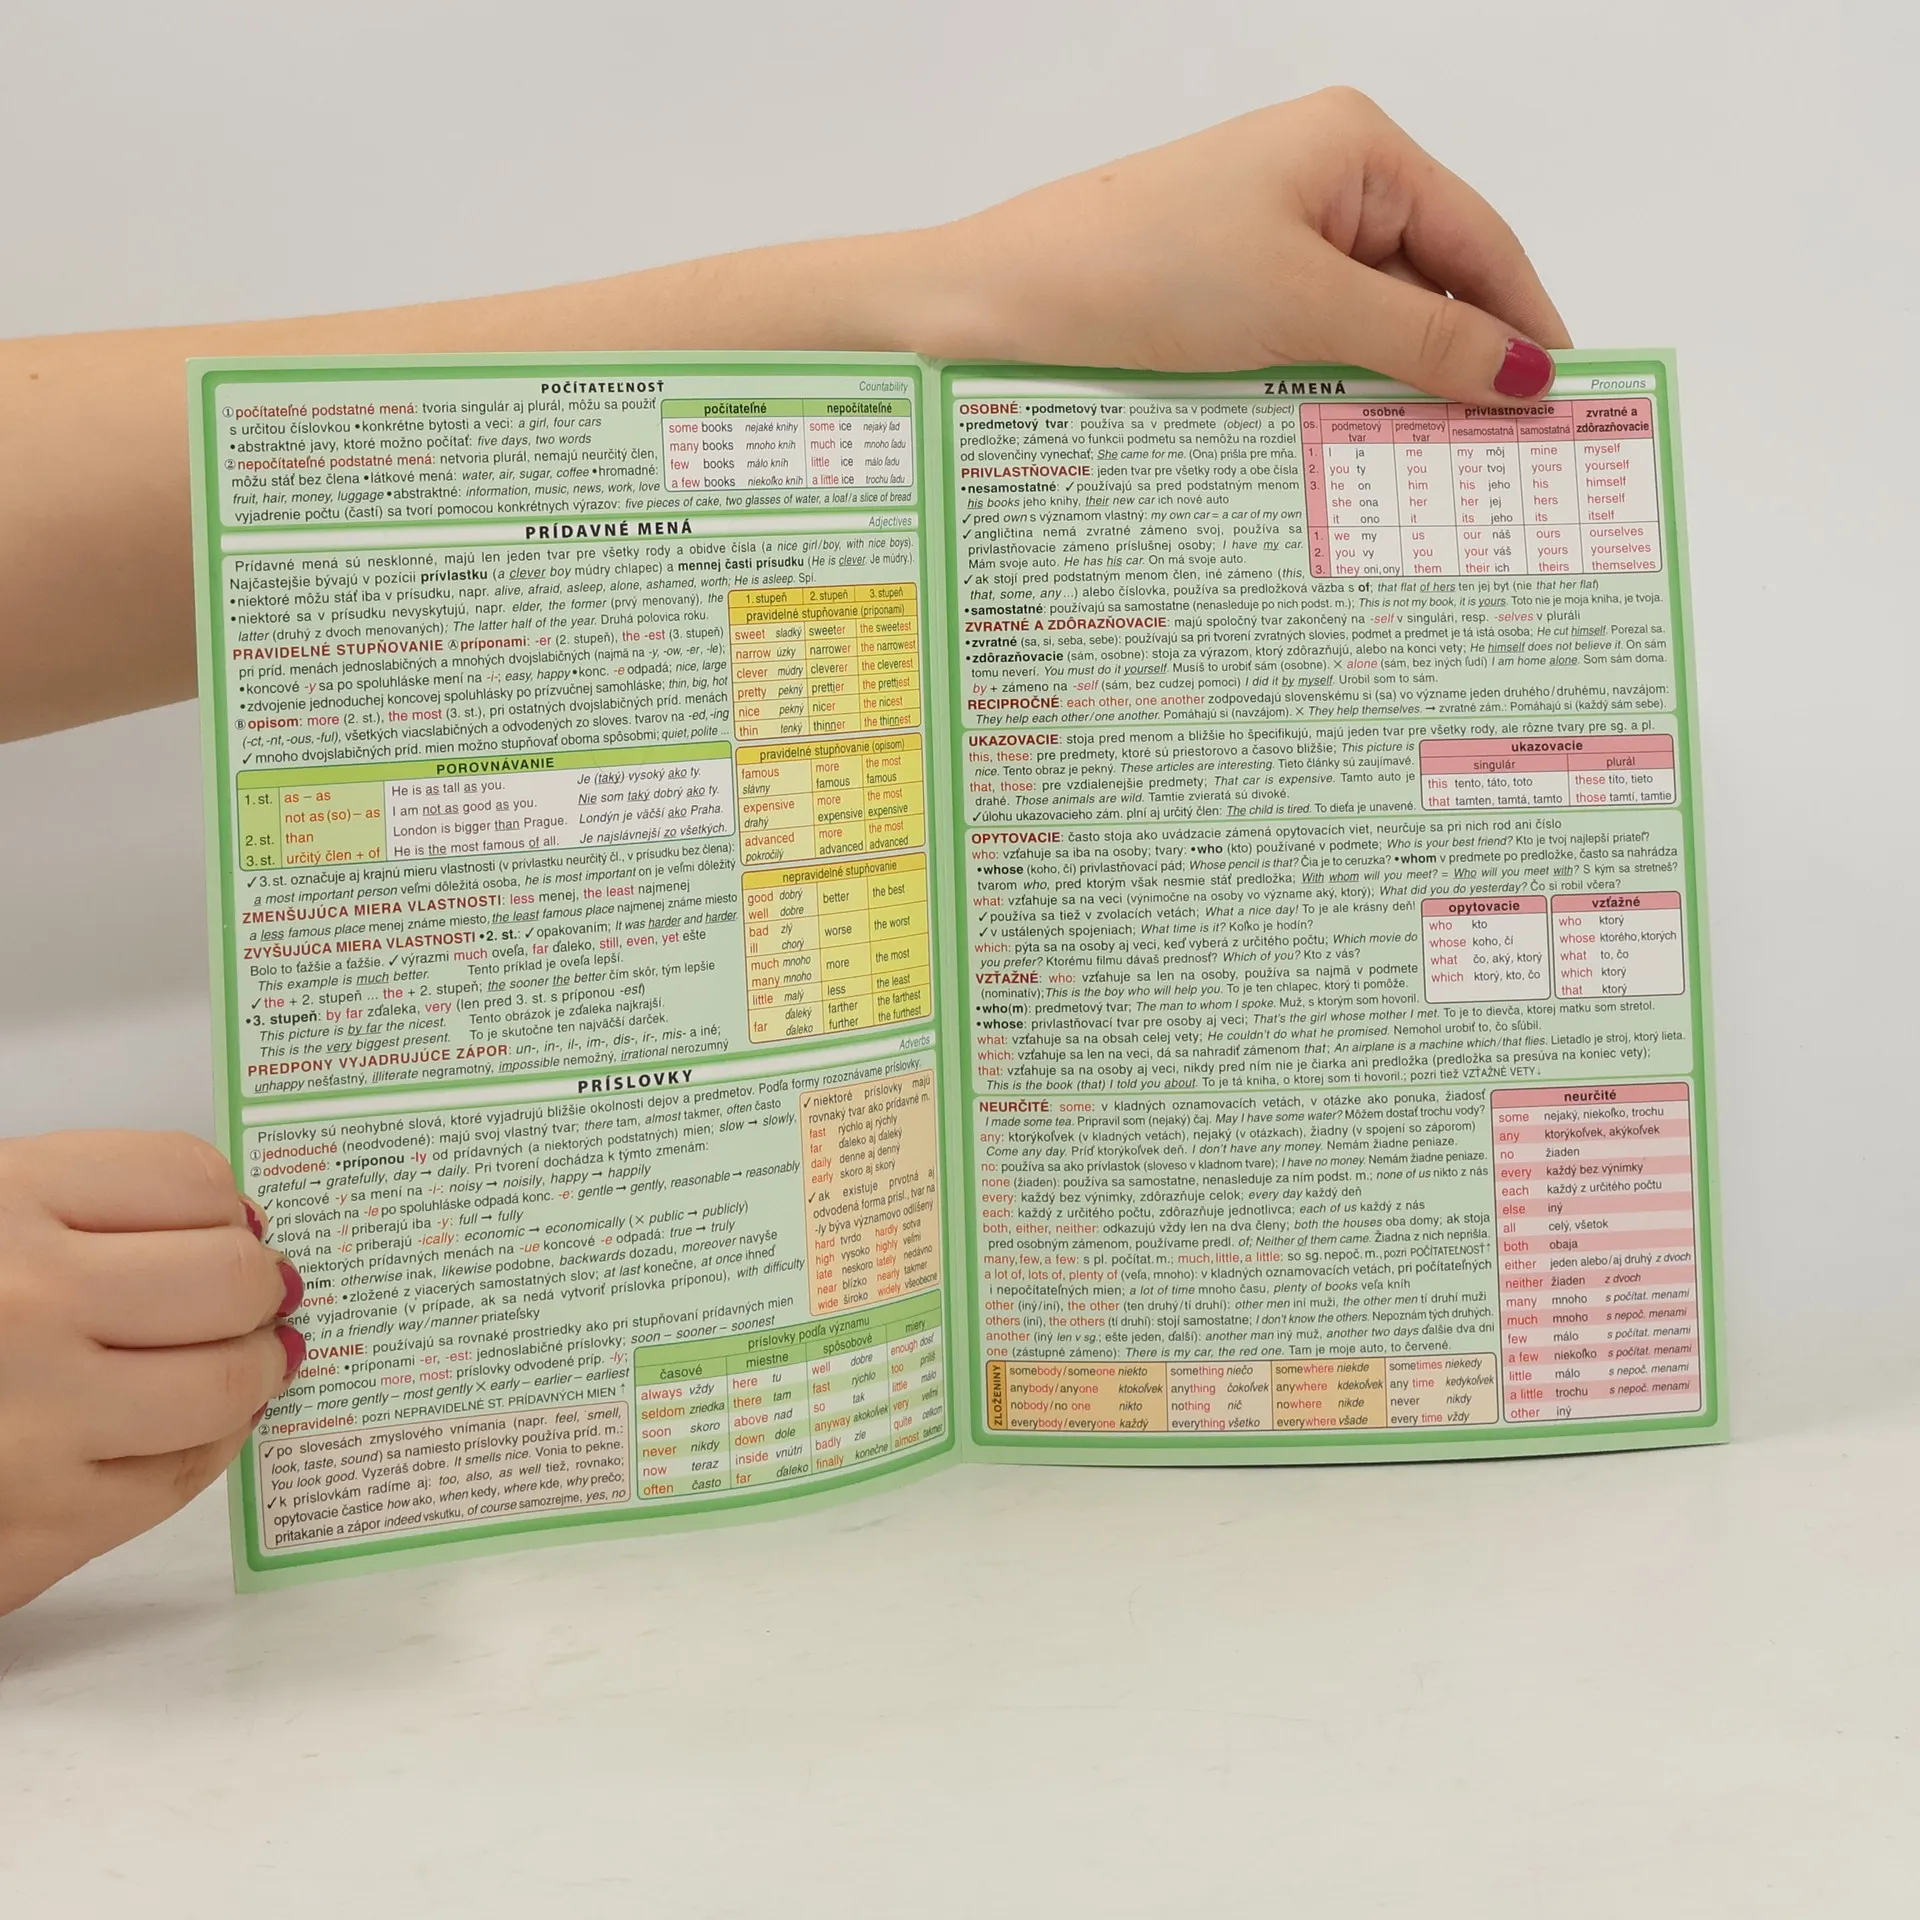 POČÍTATEĽNOSŤ
Countability
①počítateľné podstatné mená: tvoria singulár aj plurál, môžu sa použiť
s určitou číslovkou •konkrétne bytosti a veci: a girl, four cars
•abstraktné javy, ktoré možno počítať: five days, two words
②nepočítateľné podstatné mená: netvoria plurál, nemajú neurčitý člen,
môžu stáť bez člena •látkové mená: water, air, sugar, coffee •hromadné:
fruit, hair, money, luggage •abstraktné: information, music, news, work, love
vyjadrenie počtu (častí) sa tvorí pomocou konkrétnych výrazov: five pieces of cake, two glasses of water, a loaf/a slice of bread
počítateľné nepočítateľné
some books nejaké knihy some ice nejaký ľad
many books mnoho kníh much ice mnoho ľadu
few books málo kníh little ice málo ľadu
a few books niekoľko kníh a little ice trochu ľadu
PRÍDAVNÉ MENÁ
Adjectives
Prídavné mená sú nesklonné, majú len jeden tvar pre všetky rody a obidve čísla (a nice girl/boy, with nice boys).
Najčastejšie bývajú v pozícii prívlastku (a clever boy múdry chlapec) a mennej časti prísudku (He is clever. Je múdry.).
•niektoré môžu stáť iba v prísudku, napr. alive, afraid, asleep, alone, ashamed, worth; He is asleep. Spí.
•niektoré sa v prísudku nevyskytujú, napr. elder, the former (prvý menovaný), the
latter (druhý z dvoch menovaných); The latter half of the year. Druhá polovica roku.
PRAVIDELNÉ STUPŇOVANIE Ⓐpríponami: -er (2. stupeň), the -est (3. stupeň)
pri príd. menách jednoslabičných a mnohých dvojslabičných (najmä na -y, -ow, -er, -le);
•koncové -y sa po spoluhláske mení na -i-; easy, happy •konc. -e odpadá; nice, large
•zdvojenie jednoduchej koncovej spoluhlásky po prízvučnej samohláske; thin, big, hot
Ⓑopisom: more (2. st.), the most (3. st.), pri ostatných dvojslabičných príd. menách
(-ct, -nt, -ous, -ful), všetkých viacslabičných a odvodených zo sloves. tvarov na -ed, -ing
✓mnoho dvojslabičných príd. mien možno stupňovať oboma spôsobmi; quiet, polite ...
1. stupeň 2. stupeň 3. stupeň
pravidelné stupňovanie (príponami)
sweet sladký sweeter the sweetest
narrow úzky narrower the narrowest
clever múdry cleverer the cleverest
pretty pekný prettier the prettiest
nice pekný nicer the nicest
thin tenký thinner the thinnest
pravidelné stupňovanie (opisom)
famous slávny more famous the most famous
expensive drahý more expensive the most expensive
advanced pokročilý more advanced the most advanced
nepravidelné stupňovanie
good dobrý
well dobre better the best
bad zlý
ill chorý worse the worst
much mnoho
many mnoho more the most
little malý less the least
far ďaleký farther the farthest
ďaleko further the furthest
POROVNÁVANIE
1. st. as – as He is as tall as you. Je (taký) vysoký ako ty.
not as (so) – as I am not as good as you. Nie som taký dobrý ako ty.
2. st. than London is bigger than Prague. Londýn je väčší ako Praha.
3. st. určitý člen + of He is the most famous of all. Je najslávnejší zo všetkých.
✓3. st. označuje aj krajnú mieru vlastnosti (v prívlastku neurčitý čl., v prísudku bez člena);
a most important person veľmi dôležitá osoba, he is most important on je veľmi dôležitý
ZMENŠUJÚCA MIERA VLASTNOSTI: less menej, the least najmenej
a less famous place menej známe miesto, the least famous place najmenej známe miesto
ZVYŠUJÚCA MIERA VLASTNOSTI •2. st.: ✓opakovaním; It was harder and harder.
Bolo to ťažšie a ťažšie. ✓výrazmi much oveľa, far ďaleko, still, even, yet ešte
This example is much better. Tento príklad je oveľa lepší.
✓the + 2. stupeň ... the + 2. stupeň; the sooner the better čím skôr, tým lepšie
•3. stupeň: by far zďaleka, very (len pred 3. st. s príponou -est)
This picture is by far the nicest. Tento obrázok je zďaleka najkrajší.
This is the very biggest present. To je skutočne ten najväčší darček.
PREDPONY VYJADRUJÚCE ZÁPOR: un-, in-, il-, im-, dis-, ir-, mis- a iné;
unhappy nešťastný, illiterate negramotný, impossible nemožný, irrational nerozumný
PRÍSLOVKY
Adverbs
Príslovky sú neohybné slová, ktoré vyjadrujú bližšie okolnosti dejov a predmetov. Podľa formy rozoznávame príslovky.
①jednoduché (neodvodené): majú svoj vlastný tvar; there tam, almost takmer, often často
②odvodené: •príponou -ly od prídavných (a niektorých podstatných) mien; slow → slowly,
grateful → gratefully, day → daily. Pri tvorení dochádza k týmto zmenám:
✓koncové -y sa mení na -i-: noisy → noisily, happy → happily
pri slovách na -le po spoluhláske odpadá konc. -e: gentle → gently, reasonable → reasonably
slová na -ll priberajú iba -y: full → fully
slová na -ic priberajú -ically: economic → economically (× public → publicly)
niektorých prídavných menách na -ue koncové -e odpadá: true → truly
ním: otherwise inak, likewise podobne, backwards dozadu, moreover navyše
ovné: •zložené z viacerých samostatných slov; at last konečne, at once ihneď
sné vyjadrovanie (v prípade, ak sa nedá vytvoriť príslovka príponou), with difficulty
e; in a friendly way/manner priateľsky
OVANIE: používajú sa rovnaké prostriedky ako pri stupňovaní prídavných mien
idelné: •príponami -er, -est: jednoslabičné príslovky; soon – sooner – soonest
pisom pomocou more, most: príslovky odvodené príp. -ly;
gently – more gently – most gently × early – earlier – earliest
②nepravidelné: pozri NEPRAVIDELNÉ ST. PRÍDAVNÝCH MIEN ↑
✓niektoré príslovky majú
rovnaký tvar ako prídavné m.
fast rýchlo aj rýchly
far ďaleko aj ďaleký
daily denne aj denný
early skoro aj skorý
✓ak existuje prvotná aj
odvodená forma prísl., tvar na
-ly býva významovo odlišený
hard tvrdo hardly sotva
high vysoko highly veľmi
late neskoro lately nedávno
near blízko nearly takmer
wide široko widely všeobecne
✓po slovesách zmyslového vnímania (napr. feel, smell,
look, taste, sound) sa namiesto príslovky používa príd. m.:
You look good. Vyzeráš dobre. It smells nice. Vonia to pekne.
✓k príslovkám radíme aj: too, also, as well tiež, rovnako;
opytovacie častice how ako, when kedy, where kde, why prečo;
pritakanie a zápor indeed vskutku, of course samozrejme, yes, no
príslovky podľa významu
časové miestne spôsobové miery
always vždy here tu well dobre enough dosť
seldom zriedka there tam fast rýchlo too príliš
soon skoro above nad so tak little málo
never nikdy down dole anyway akokoľvek very veľmi
now teraz inside vnútri badly zle quite celkom
often často far ďaleko finally konečne almost takmer
ZÁMENÁ
Pronouns
OSOBNÉ: •podmetový tvar: používa sa v podmete (subject)
•predmetový tvar: používa sa v predmete (object) a po
predložke; zámená vo funkcii podmetu sa nemôžu na rozdiel
od slovenčiny vynechať; She came for me. (Ona) prišla pre mňa.
PRIVLASTŇOVACIE: jeden tvar pre všetky rody a obe čísla
•nesamostatné: ✓používajú sa pred podstatným menom
his books jeho knihy, their new car ich nové auto
✓pred own s významom vlastný: my own car = a car of my own
✓angličtina nemá zvratné zámeno svoj, používa sa
privlastňovacie zámeno príslušnej osoby; I have my car.
Mám svoje auto. He has his car. On má svoje auto.
✓ak stojí pred podstatným menom člen, iné zámeno (this,
that, some, any...) alebo číslovka, používa sa predložková väzba s of; that flat of hers ten jej byt (nie that her flat)
•samostatné: používajú sa samostatne (nenasleduje po nich podst. m.); This is not my book, it is yours. Toto nie je moja kniha, je tvoja.
os. osobné privlastňovacie zvratné a zdôrazňovacie
podmetový tvar predmetový tvar nesamostatná samostatná
1. I ja me my môj mine myself
2. you ty you your tvoj yours yourself
3. he on him his jeho his himself
she ona her her jej hers herself
it ono it its jeho its itself
1. we my us our náš ours ourselves
2. you vy you your váš yours yourselves
3. they oni, ony them their ich theirs themselves
ZVRATNÉ A ZDÔRAZŇOVACIE: majú spoločný tvar zakončený na -self v singulári, resp. -selves v pluráli
•zvratné (sa, si, seba, sebe): používajú sa pri tvorení zvratných slovies, podmet a predmet je tá istá osoba; He cut himself. Porezal sa.
•zdôrazňovacie (sám, osobne): stoja za výrazom, ktorý zdôrazňujú, alebo na konci vety; He himself does not believe it. On sám
tomu neverí. You must do it yourself. Musíš to urobiť sám (osobne). × alone (sám, bez iných ľudí) I am home alone. Som sám doma.
by + zámeno na -self (sám, bez cudzej pomoci) I did it by myself. Urobil som to sám.
RECIPROČNÉ: each other, one another zodpovedajú slovenskému si (sa) vo význame jeden druhého/druhému, navzájom:
They help each other/one another. Pomáhajú si (navzájom). × They help themselves. → zvratné zám.: Pomáhajú si (každý sám sebe).
UKAZOVACIE: stoja pred menom a bližšie ho špecifikujú, majú jeden tvar pre všetky rody, ale rôzne tvary pre sg. a pl.
this, these: pre predmety, ktoré sú priestorovo a časovo bližšie; This picture is
nice. Tento obraz je pekný. These articles are interesting. Tieto články sú zaujímavé.
that, those: pre vzdialenejšie predmety; That car is expensive. Tamto auto je
drahé. Those animals are wild. Tamtie zvieratá sú divoké.
✓úlohu ukazovacieho zám. plní aj určitý člen: The child is tired. To dieťa je unavené.
ukazovacie
singulár plurál
this tento, táto, toto these títo, tieto
that tamten, tamtá, tamto those tamtí, tamtie
OPYTOVACIE: často stoja ako uvádzacie zámená opytovacích viet, neurčuje sa pri nich rod ani číslo
who: vzťahuje sa iba na osoby; tvary: •who (kto) používané v podmete; Who is your best friend? Kto je tvoj najlepší priateľ?
•whose (koho, čí) privlastňovací pád; Whose pencil is that? Čia je to ceruzka? •whom v predmete po predložke, často sa nahrádza
tvarom who, pred ktorým však nesmie stáť predložka; With whom will you meet? = Who will you meet with? S kým sa stretneš?
what: vzťahuje sa na veci (výnimočne na osoby vo význame aký, ktorý); What did you do yesterday? Čo si robil včera?
✓používa sa tiež v zvolacích vetách; What a nice day! To je ale krásny deň!
✓v ustálených spojeniach; What time is it? Koľko je hodín?
which: pýta sa na osoby aj veci, keď vyberá z určitého počtu; Which movie do
you prefer? Ktorému filmu dávaš prednosť? Which of you? Kto z vás?
opytovacie
who kto
whose koho, čí
what čo, aký, ktorý
which ktorý, kto, čo
vzťažné
who ktorý
whose ktorého, ktorých
what to, čo
which ktorý
that ktorý
VZŤAŽNÉ: who: vzťahuje sa len na osoby, používa sa najmä v podmete
(nominatív); This is the boy who will help you. To je ten chlapec, ktorý ti pomôže.
•who(m): predmetový tvar; The man to whom I spoke. Muž, s ktorým som hovoril.
•whose: privlastňovací tvar pre osoby aj veci; That's the girl whose mother I met. To je to dievča, ktorej matku som stretol.
what: vzťahuje sa na obsah celej vety; He couldn't do what he promised. Nemohol urobiť to, čo sľúbil.
which: vzťahuje sa len na veci, dá sa nahradiť zámenom that; An airplane is a machine which/that flies. Lietadlo je stroj, ktorý lieta.
that: vzťahuje sa na osoby aj veci, nikdy pred ním nie je čiarka ani predložka (predložka sa presúva na koniec vety);
This is the book (that) I told you about. To je tá kniha, o ktorej som ti hovoril.; pozri tiež VZŤAŽNÉ VETY↓
NEURČITÉ: some: v kladných oznamovacích vetách, v otázke ako ponuka, žiadosť
I made some tea. Pripravil som (nejaký) čaj. May I have some water? Môžem dostať trochu vody?
any: ktorýkoľvek (v kladných vetách), nejaký (v otázkach), žiadny (v spojení so záporom)
Come any day. Príď ktorýkoľvek deň. I don't have any money. Nemám žiadne peniaze.
no: používa sa ako prívlastok (sloveso v kladnom tvare); I have no money. Nemám žiadne peniaze.
none (žiaden): používa sa samostatne, nenasleduje za ním podst. m.; none of us nikto z nás
every: každý bez výnimky, zdôrazňuje celok; every day každý deň
each: každý z určitého počtu, zdôrazňuje jednotlivca; each of us každý z nás
both, either, neither: odkazujú vždy len na dva členy; both the houses oba domy; ak stoja
pred osobným zámenom, používame predl. of; Neither of them came. Žiadna z nich neprišla.
many, few, a few: s pl. počítat. m.; much, little, a little: so sg. nepoč. m., pozri POČÍTATEĽNOSŤ↑
a lot of, lots of, plenty of (veľa, mnoho): v kladných oznamovacích vetách, pri počítateľných
i nepočítateľných mien; a lot of time mnoho času, plenty of books veľa kníh
other (iný/iní), the other (ten druhý/tí druhí): other men iní muži, the other men tí druhí muži
others (iní), the others (tí druhí): stojí samostatne; I don't know the others. Nepoznám tých druhých.
another (iný len v sg.; ešte jeden, ďalší): another man iný muž, another two days ďalšie dva dni
one (zástupné zámeno): There is my car, the red one. Tam je moje auto, to červené.
neurčité
some nejaký, niekoľko, trochu
any ktorýkoľvek, akýkoľvek
no žiaden
every každý bez výnimky
each každý z určitého počtu
else iný
all celý, všetok
both obaja
either jeden alebo/aj druhý z dvoch
neither žiaden z dvoch
many mnoho s počítat. menami
much mnoho s nepoč. menami
few málo s počítat. menami
a few niekoľko s počítat. menami
little málo s nepoč. menami
a little trochu s nepoč. menami
other iný
ZLOŽENINY
somebody/someone niekto something niečo somewhere niekde sometimes niekedy
anybody/anyone ktokoľvek anything čokoľvek anywhere kdekoľvek any time kedykoľvek
nobody/no one nikto nothing nič nowhere nikde never nikdy
everybody/everyone každý everything všetko everywhere všade every time vždy